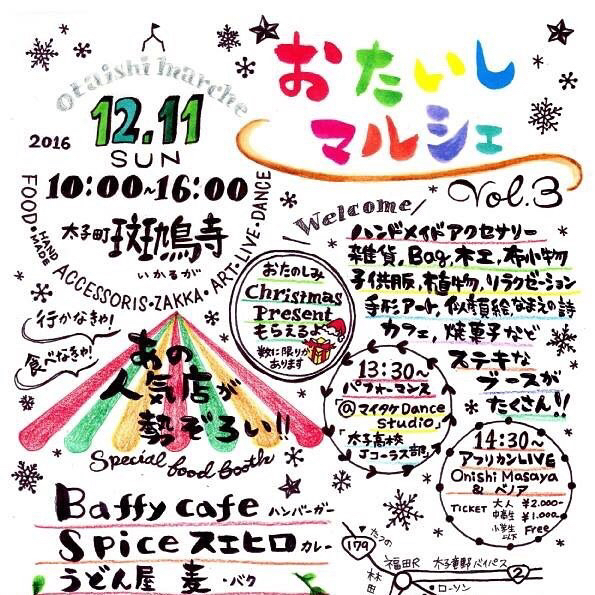 otaishi marche
おたいし
マルシェ
2016
12.11
SUN
10:00~16:00
Vol.3
太子町 斑鳩寺
いかるが
FOOD・HAND MADE ACCESSORIS・ZAKKA・ART・LIVE・DANCE
Welcome
ハンドメイドアクセサリー
雑貨,Bag,木工,布小物
子供服,植物,リラクゼーション
手形アート,似顔絵,なまえの詩
カフェ,焼菓子など
ステキな
ブースが
たくさん!!
おたのしみ
Christmas
Present
もらえるよ
数に限りが
あります
行かなきゃ!
食べなきゃ!
あの
人気店が
勢ぞろい!!
Special food booth
13:30~
パフォーマンス
「@マイタケDance
Studio」
「太子高校
Jコーラス部」
14:30~
アフリカンLIVE
Onishi Masaya
& ベノア
TICKET 大人 ¥2.000-
中高生 ¥1.000-
小学生以下 Free
Baffy cafe ハンバーガー
Spice スエヒロ カレー
うどん屋 麦・バク
たつの
179
福田R 太子竜野バイパス
2
林田
ローソン